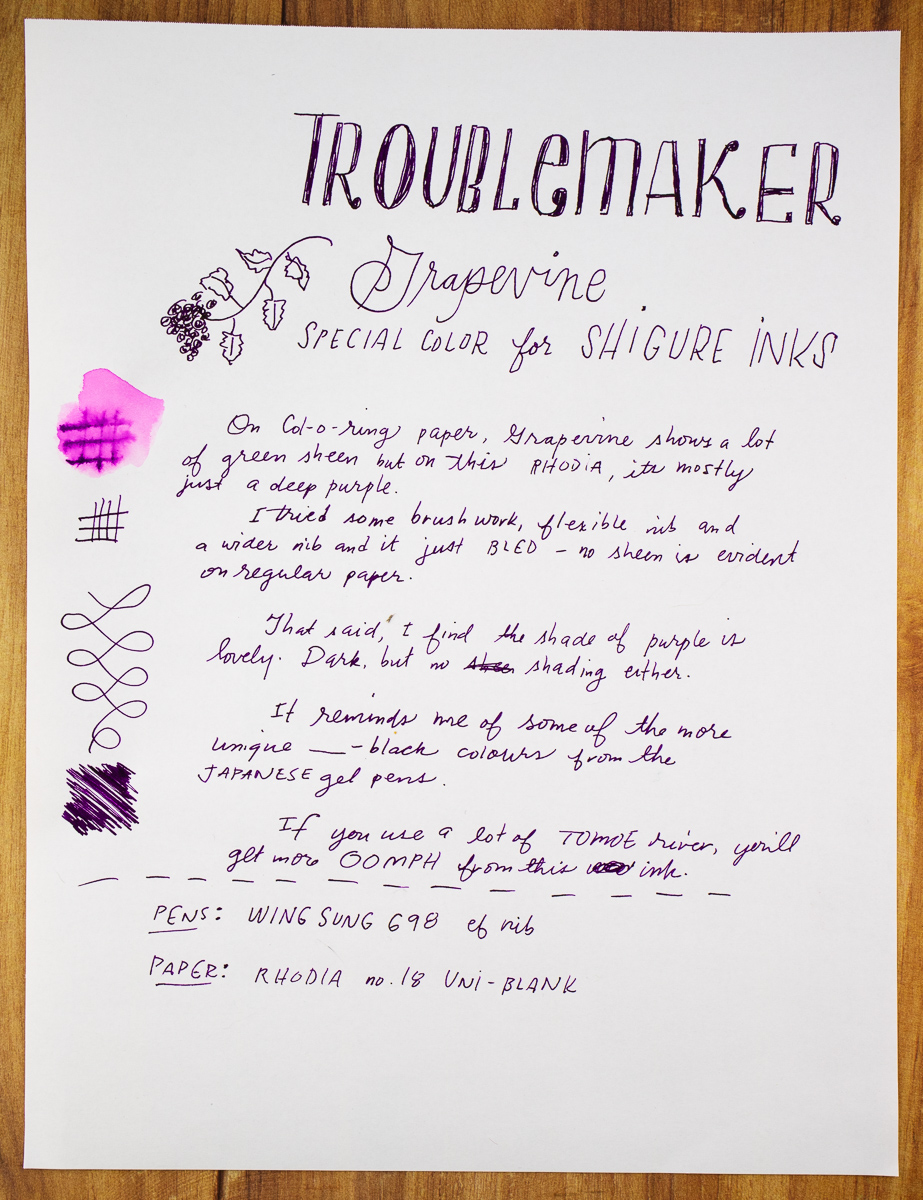 TROUBLEMAKER
Grapevine
SPECIAL COLOR for SHIGURE INKS
On Col-o-ring paper, Grapevine shows a lot
of green sheen but on this RHODIA, its mostly
just a deep purple.
I tried some brush work, flexible nib and
a wider nib and it just BLED – no sheen is evident
on regular paper.
That said, I find the shade of purple is
lovely. Dark, but no shading either.
It reminds me of some of the more
unique ___-black colours from the
JAPANESE gel pens.
If you use a lot of TOMOE river, you'll
get more OOMPH from this ink.
PENS: WING SUNG 698 ef nib
PAPER: RHODIA no. 18 UNI-BLANK